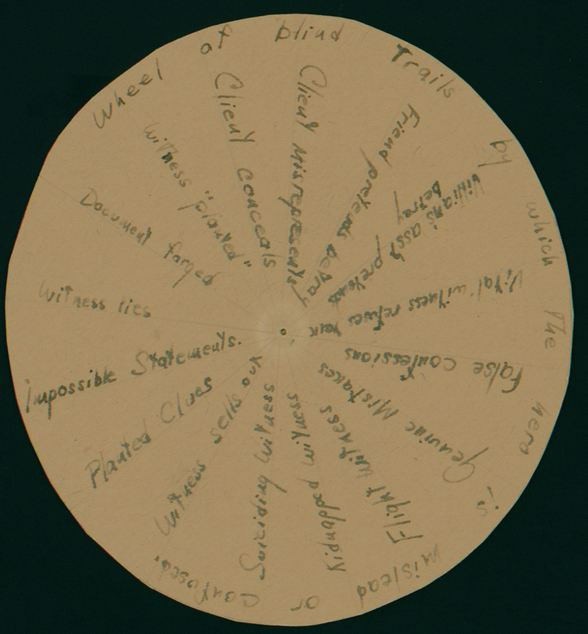 Wheel of blind Trails by which the hero is mislead or confused.
Client Misrepresents
Friend pretends betray
Villian's ass't pretends betray
Vital witness refuses talk
False confessions
Genuine Mistakes
Flight witness
Kidnapped witness
Suiciding Witness
Witness sells out
Planted Clues
Impossible Statements.
Witness lies
Document forged
Witness "planted"
Client conceals